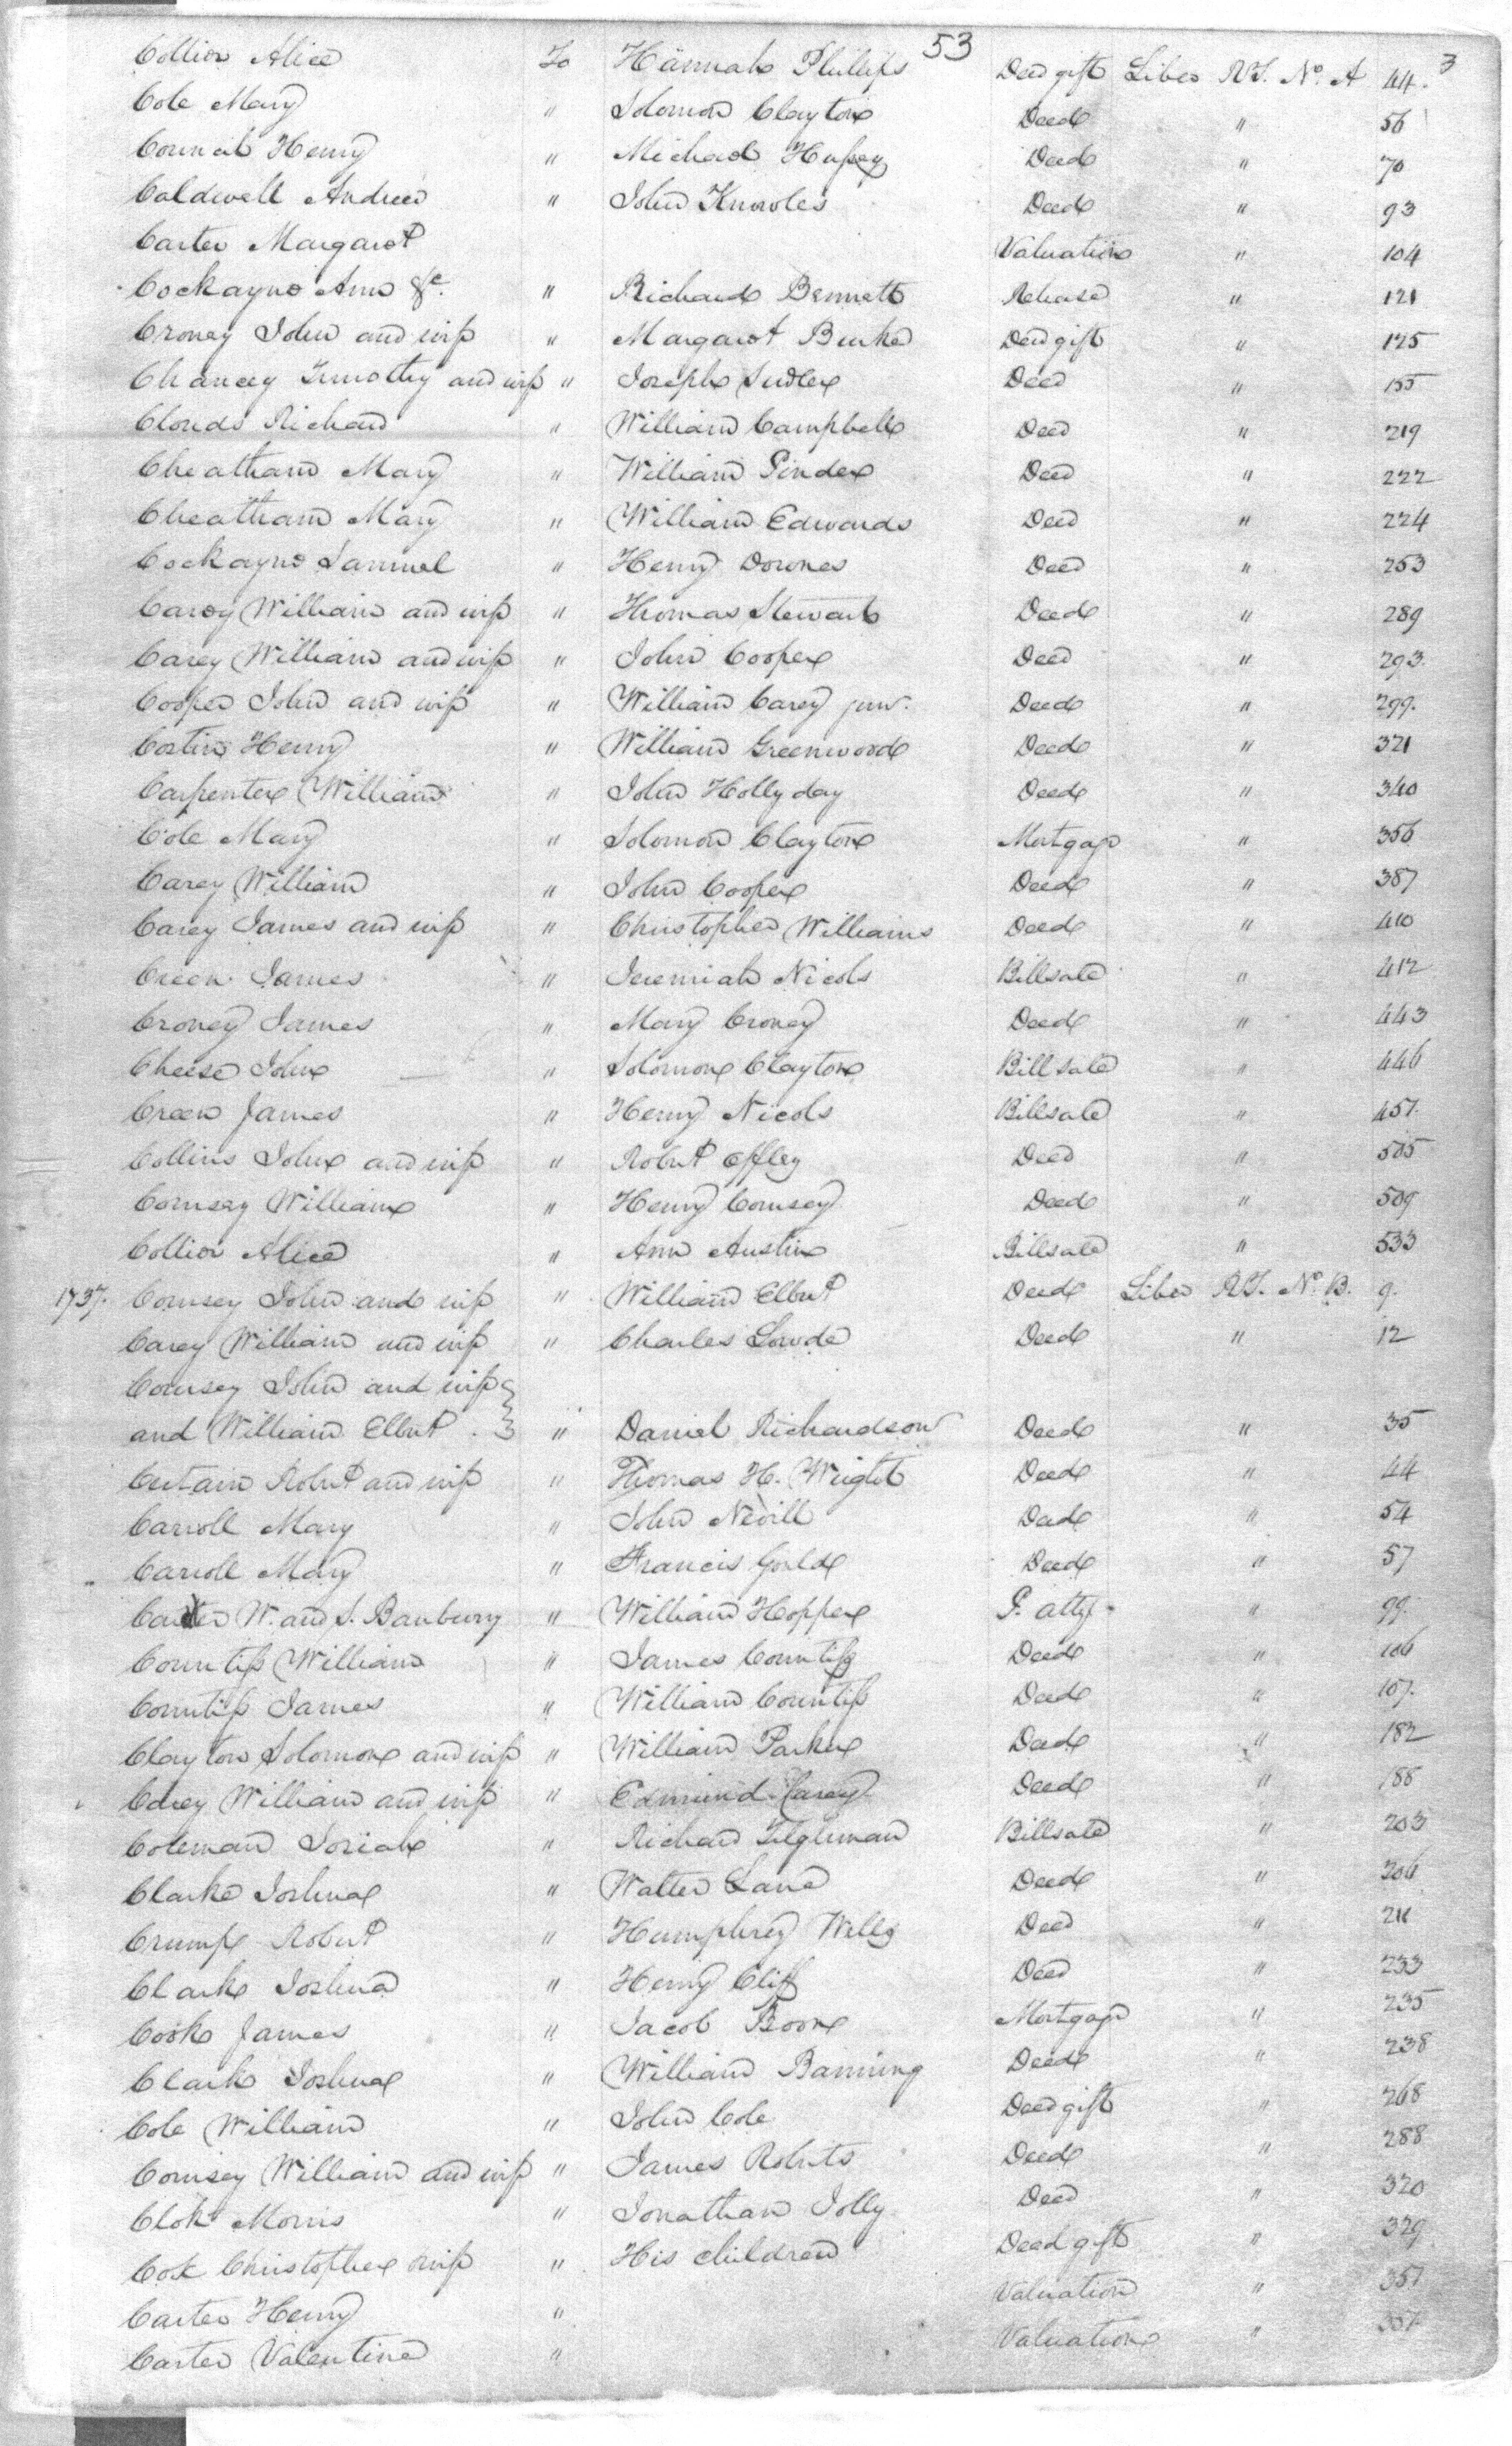 53
3
Collier Alice To Hannah Phillips Deed gift Liber RT. No. A 44.
Cole Mary " Solomon Clayton Deed " 56
Council Henry " Michael Hussey Deed " 70
Caldwell Andrew " John Knowles Deed " 93
Carter Margaret Valuation " 104
Cockayne Ann &c. " Richard Bennett Release " 121
Croney John and wife " Margaret Burke Deed gift " 125
Chancey Timothy and wife " Joseph Sudler Deed " 155
Clouds Richard " William Campbell Deed " 219
Cheatham Mary " William Pinder Deed " 222
Cheatham Mary " William Edwards Deed " 224
Cockayne Samuel " Henry Downes Deed " 253
Carey William and wife " Thomas Stewart Deed " 289
Carey William and wife " John Cooper Deed " 293.
Cooper John and wife " William Carey junr. Deed " 299.
Costin Henry " William Greenwood Deed " 321
Carpenter William " John Hollyday Deed " 340
Cole Mary " Solomon Clayton Mortgage " 356
Carey William " John Cooper Deed " 387
Carey James and wife " Christopher Williams Deed " 410
Creen James " Jeremiah Nicols Billsale " 412
Croney James " Mary Croney Deed " 443
Cheese John " Solomon Clayton Billsale " 446
Creen James " Henry Nicols Billsale " 457.
Collins John and wife " Robert Offley Deed " 505
Comsey William " Henry Comsey Deed " 509
Collier Alice " Ann Austin Billsale " 533
1737. Comsey John and wife " William Elbert Deed Liber RT. No. B. 9.
Carey William and wife " Charles Lowde Deed " 12
Comsey John and wife
and William Elbert " Daniel Richardson Deed " 35
Certain Robert and wife " Thomas H. Wright Deed " 44
Carroll Mary " John Nevill Deed " 54
Carroll Mary " Francis Gould Deed " 57
Carter W. and S. Banbury " William Hopper P. atty. " 99.
Countiss William " James Countiss Deed " 106
Countiss James " William Countiss Deed " 107.
Clayton Solomon and wife " William Parker Deed " 182
Carey William and wife " Edmund Carey Deed " 188
Coleman Josiah " Richard Tilghman Billsale " 203
Clarke Joshua " Walter Lane Deed " 206
Crump Robert " Humphrey Wells Deed " 211
Clark Joshua " Henry Cliff Deed " 233
Cook James " Jacob Boon Mortgage " 235
Clark Joshua " William Banning Deed " 238
Cole William " John Cole Deed gift " 268
Comsey William and wife " James Roberts Deed " 288
Clok Morris " Jonathan Jolly Deed " 320
Cox Christopher wife " His children Deed gift " 329
Carter Henry " Valuation " 357
Carter Valentine " Valuation "